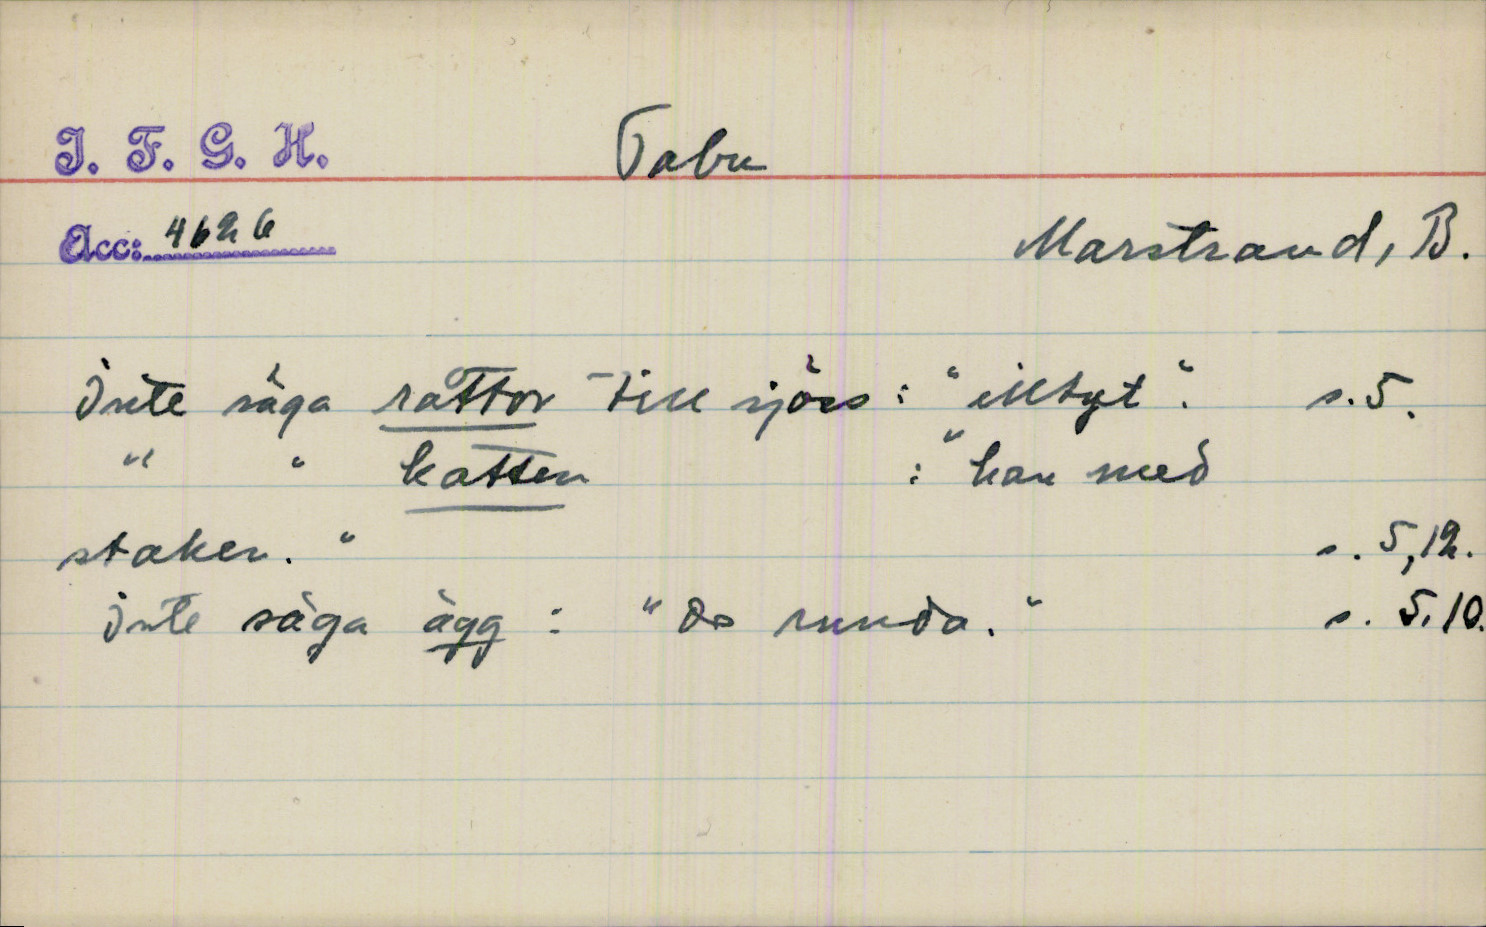 I. F. G. H.
Tabu
Acc: 4626
Marstrand, B.
Inte säga råttor till sjöss : "illtyt". s. 5.
" " katten : "han med
staken." s. 5, 12.
Inte säga ägg : "de runda." s. 5, 10.